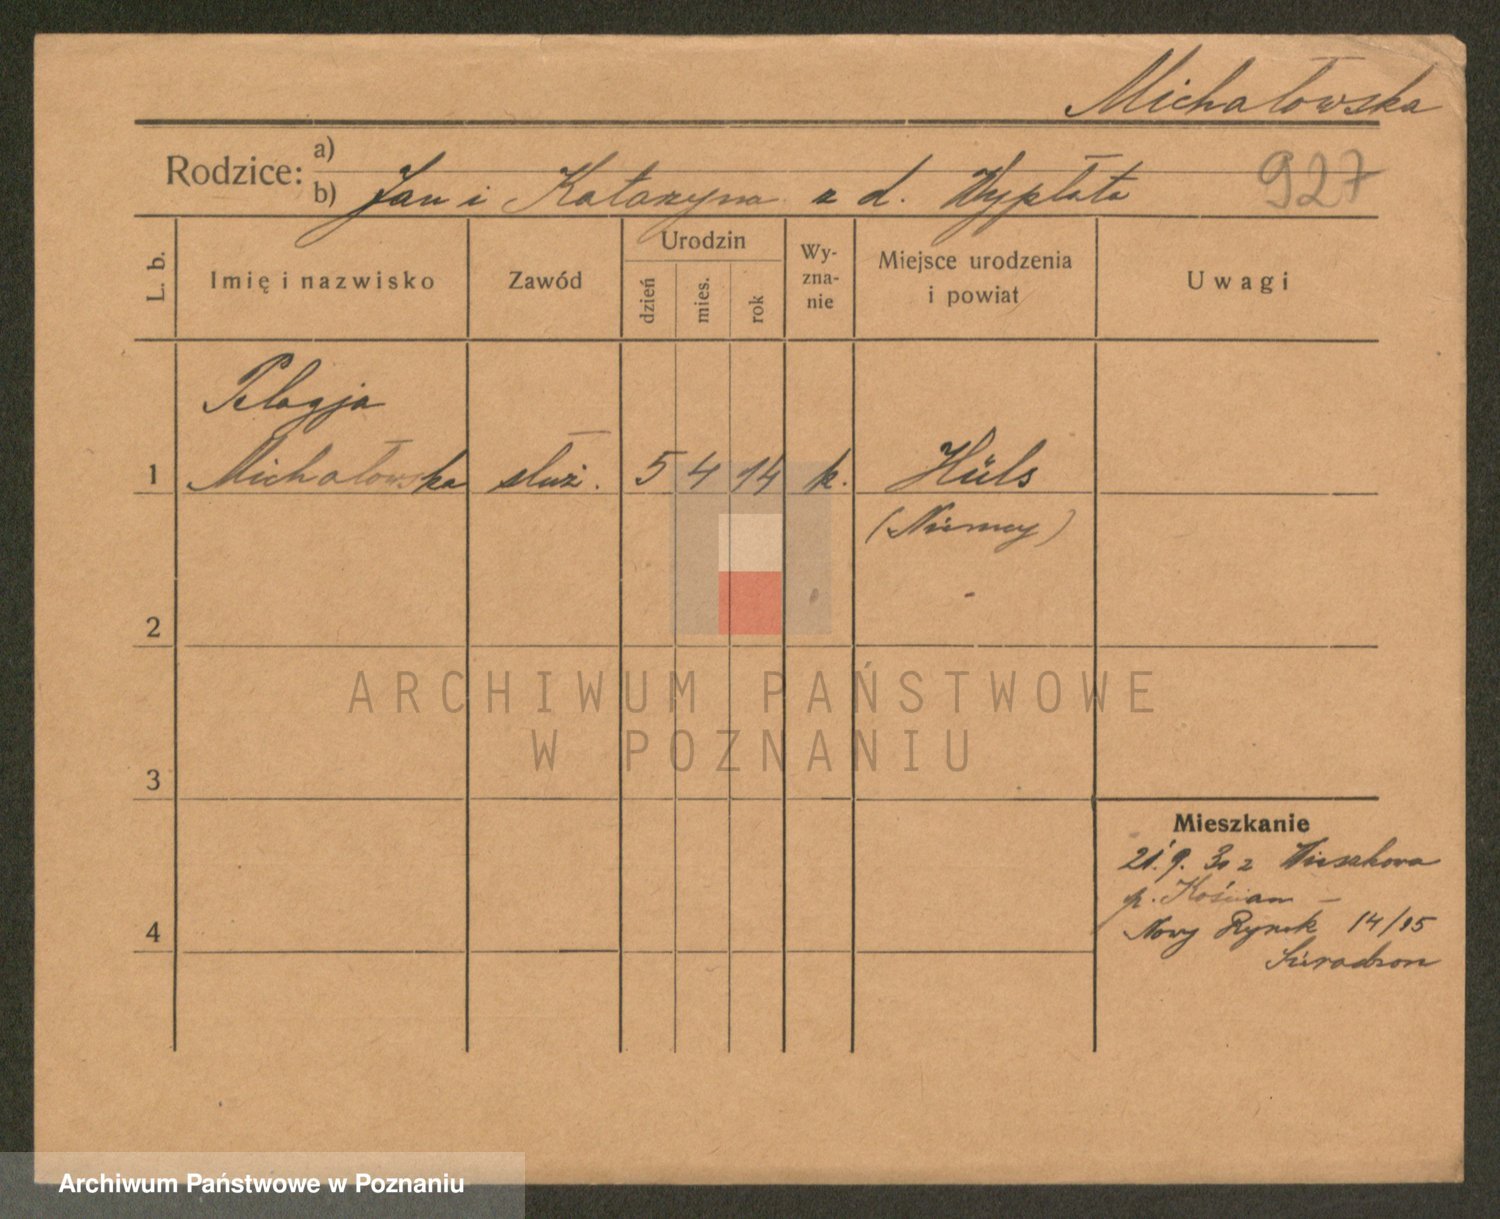 Michałowska
Rodzice: a)
b) Jan i Katarzyna z d. Wypłata
927
L. b.
Imię i nazwisko
Zawód
Urodzin
dzień
mies.
rok
Wy-
zna-
nie
Miejsce urodzenia
i powiat
Uwagi
Pelagja
1 Michałowska służ. 5 4 14 k. Hüls
(Niemcy)
2
3
4
Mieszkanie
21. 9. 30 z
p. Kościan –
Nowy Rynek 14/15
ARCHIWUM PAŃSTWOWE
W POZNANIU
Archiwum Państwowe w Poznaniu